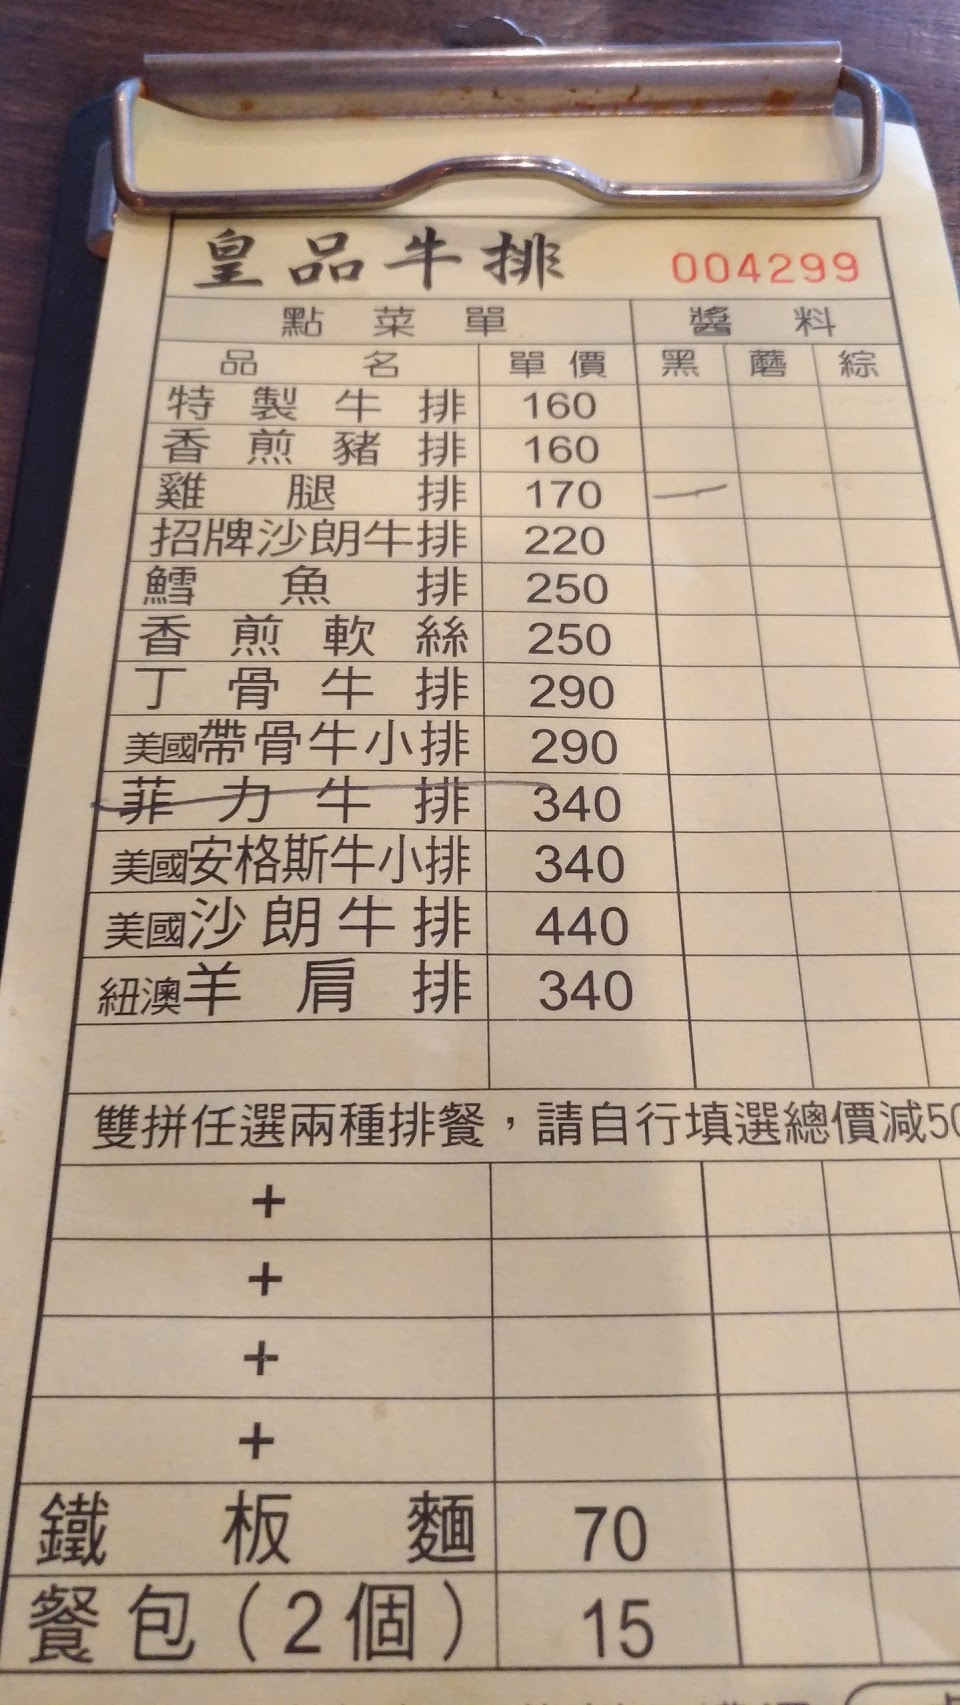 皇品牛排 004299
點菜單 醬料
品名 單價 黑 蘑 綜
特製牛排 160
香煎豬排 160
雞腿排 170
招牌沙朗牛排 220
鱈魚排 250
香煎軟絲 250
丁骨牛排 290
美國帶骨牛小排 290
菲力牛排 340
美國安格斯牛小排 340
美國沙朗牛排 440
紐澳羊肩排 340
雙拼任選兩種排餐，請自行填選總價減50
+
+
+
+
鐵板麵 70
餐包(2個) 15